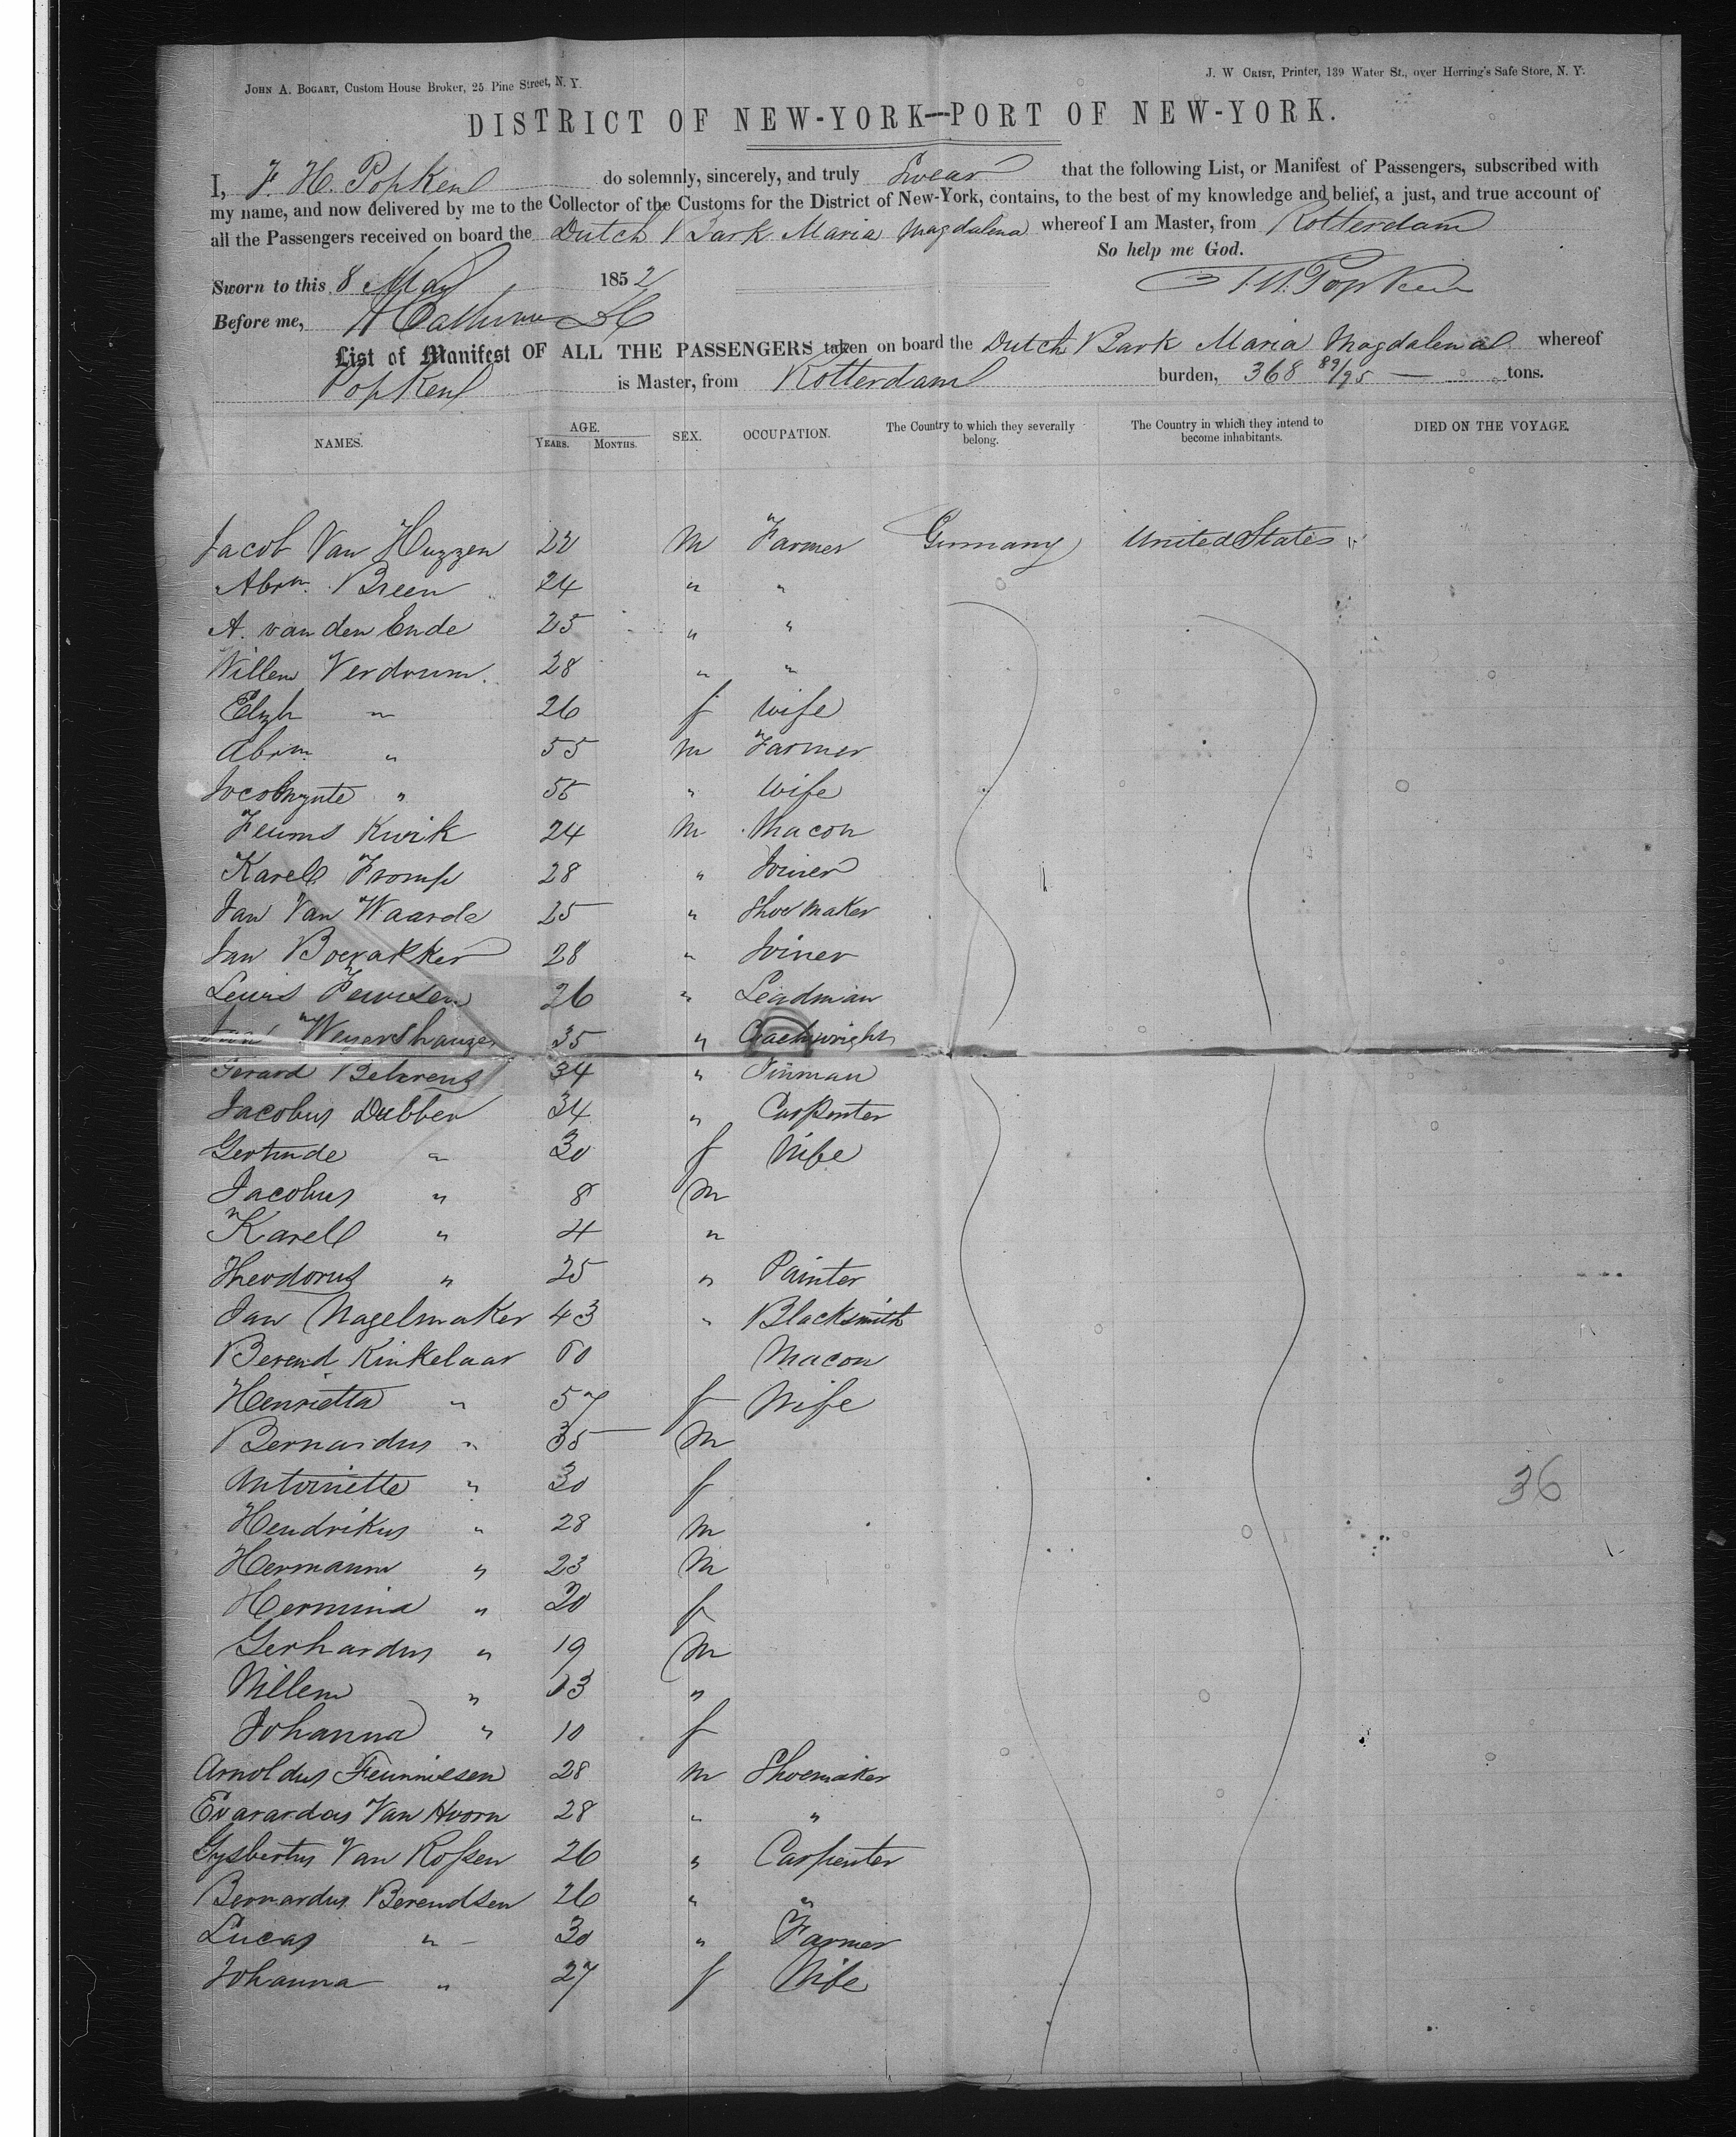 JOHN A. BOGART, Custom House Broker, 25 Pine Street, N. Y.
J. W. CRIST, Printer, 139 Water St., over Herring's Safe Store, N. Y.
DISTRICT OF NEW-YORK—PORT OF NEW-YORK.
I, F. H. Popken do solemnly, sincerely, and truly Swear that the following List, or Manifest of Passengers, subscribed with
my name, and now delivered by me to the Collector of the Customs for the District of New-York, contains, to the best of my knowledge and belief, a just, and true account of
all the Passengers received on board the Dutch Bark Maria Magdalena whereof I am Master, from Rotterdam
So help me God.
Sworn to this 8 May 1852
F. H. Popken
Before me,
List of Manifest OF ALL THE PASSENGERS taken on board the Dutch Bark Maria Magdalena whereof
Popken is Master, from Rotterdam burden, 368 89/95 — tons.
NAMES. AGE. YEARS. MONTHS. SEX. OCCUPATION. The Country to which they severally belong. The Country in which they intend to become inhabitants. DIED ON THE VOYAGE.
Jacob Van Huzzen 22 M Farmer Germany United States
Abrm. Breen 24 " "
A. van den Ende 25 " "
Willem Verdoum 28 " "
Elizh " 26 f wife
Abrm. " 55 M Farmer
" 56 " wife
Kwik 24 M Macon
Karell Tromp 28 " Joiner
Jan Van Waarde 25 " Shoemaker
Jan Boerakker 28 " Joiner
Lewis 26 " Leadman
Weyershauzer 35 " Coachwright
Gerard Behrens 34 " Tinman
Jacobus Dubben 34 " Carpenter
Gertrude " 30 f Wife
Jacobus " 8 M
Karell " 4 "
Theodorus " 25 " Painter
Jan Nagelmaker 43 " Blacksmith
Berend Kinkelaar 60 Macon
Henrietta " 57 f Wife
Bernardus " 35 M
Antoinette " 30 f
Hendrikus " 28 M
Hermann " 23 M
Hermina " 20 f
Gerhardus " 19 M
Willem " 13 "
Johanna " 10 f
Arnoldus Teunnissen 28 M Shoemaker
Evarardus Van Hoorn 28 " "
Gysbertus Van Rossen 26 " Carpenter
Bernardus Berendsen 26 " "
Lucas " 30 " Farmer
Johanna " 27 f Wife
36